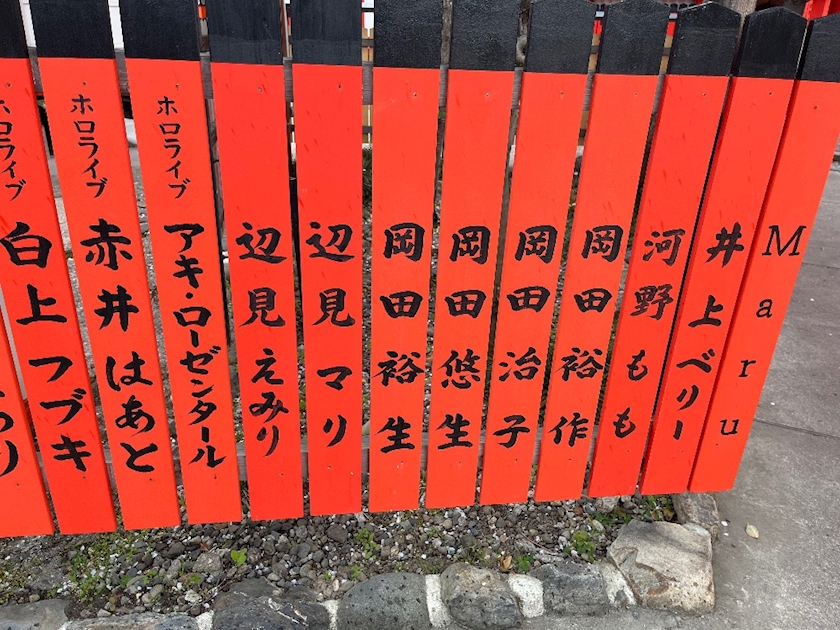 Maru
井上ベリー
河野もも
岡田裕作
岡田治子
岡田悠生
岡田裕生
辺見マリ
辺見えみり
ホロライブ アキ・ローゼンタール
ホロライブ 赤井はあと
ホロライブ 白上フブキ
り